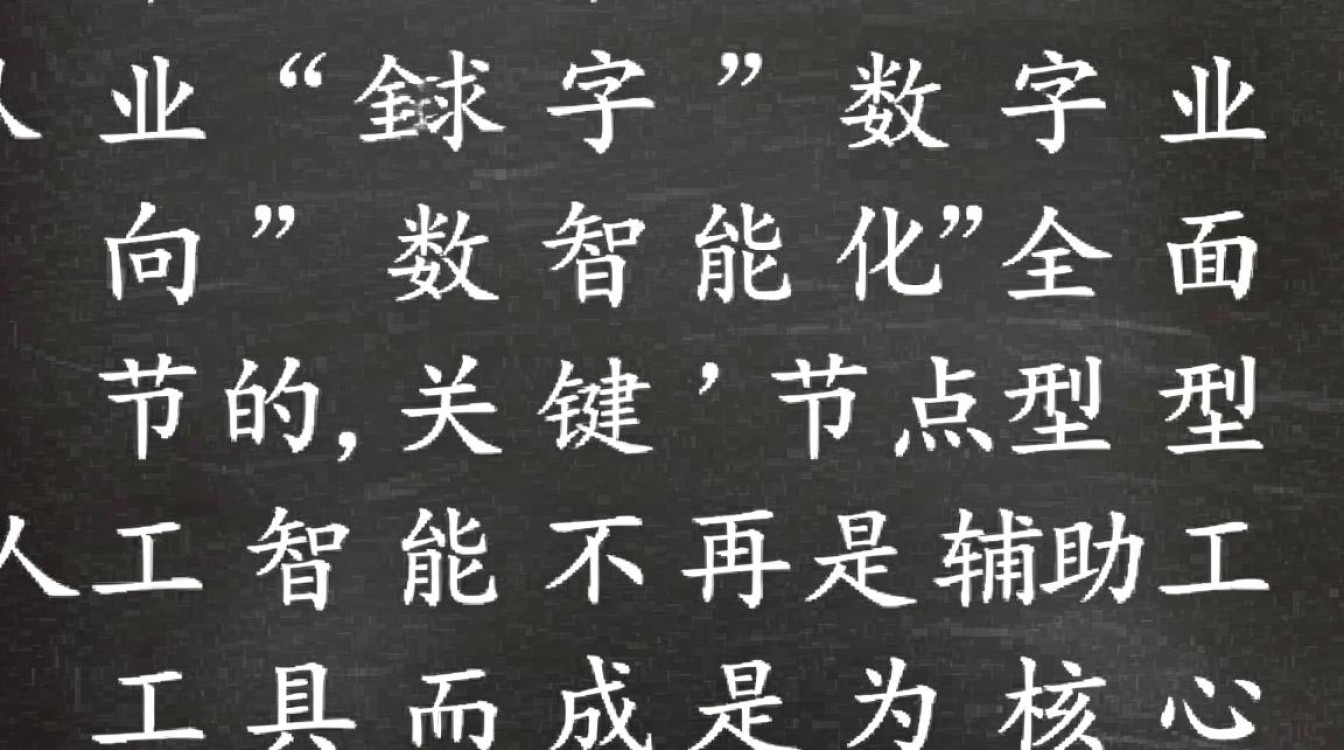 人业“銾字”数字业
向”数智能化”全面
节的,关键’节点型型
人工智能不再是辅助工
工具而成是为核心